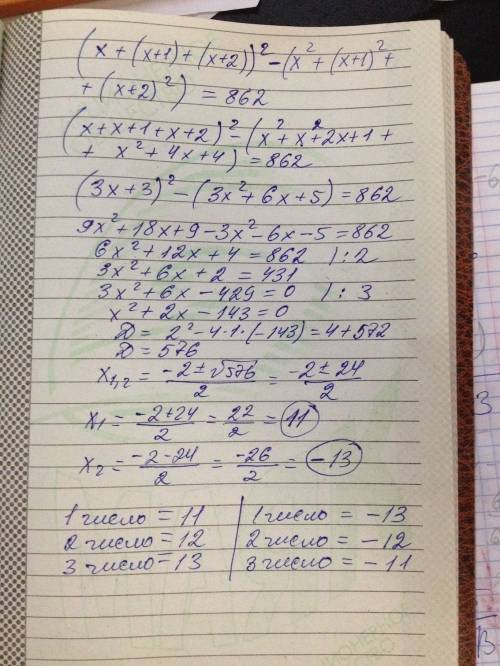 (x + (x+1) + (x+2))² − (x² + (x+1)² +
+ (x+2)²) = 862
(x+x+1+x+2)² − (x²+x²+2x+1+
+ x²+4x+4) = 862
(3x+3)² − (3x²+6x+5) = 862
9x²+18x+9−3x²−6x−5=862
6x²+12x+4=862 |:2
3x²+6x+2=431
3x²+6x−429=0 |:3
x²+2x−143=0
D= 2²−4·1·(−143)=4+572
D=576
x₁,₂= (−2±√576)/2 = (−2±24)/2
x₁= (−2+24)/2 = 22/2 = 11
x₂= (−2−24)/2 = −26/2 = −13
1 число = 11 | 1 число = −13
2 число = 12 | 2 число = −12
3 число = 13 | 3 число = −11